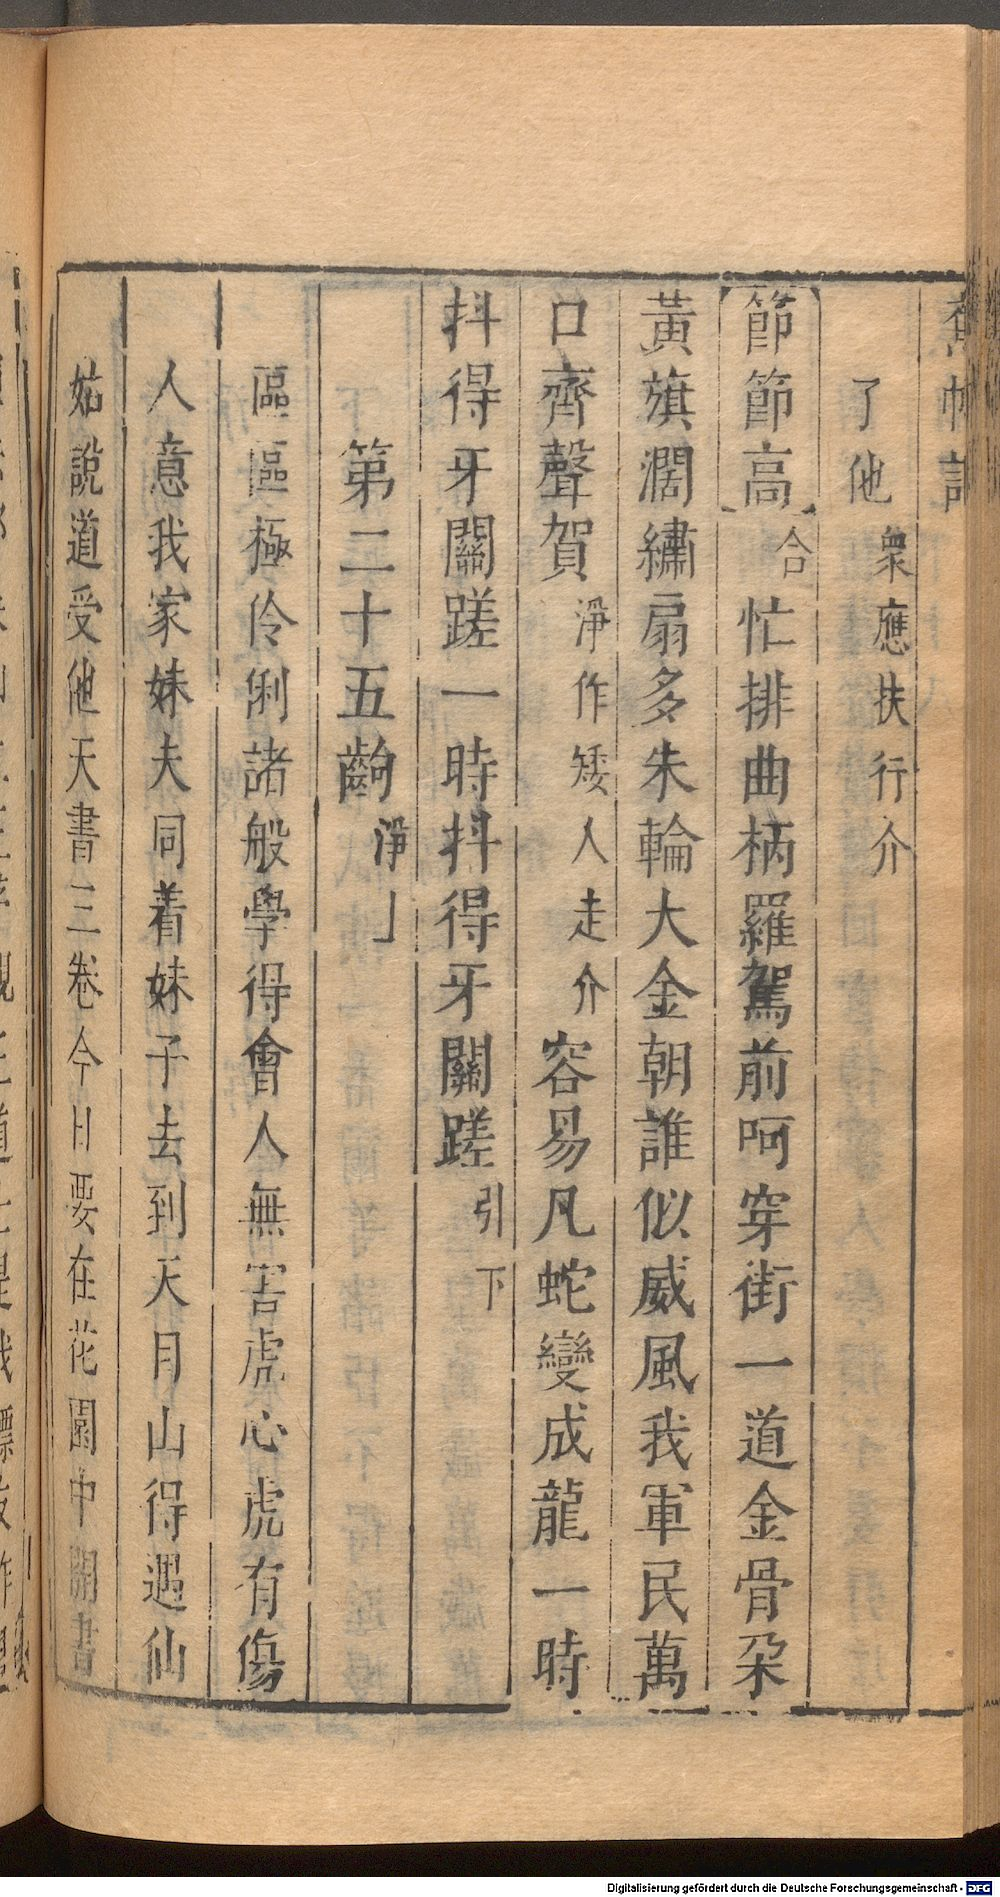 蕉帕記
了他衆應扶行介
節節高合忙排曲柄羅駕前呵穿街一道金骨朶
黃旗濶繡扇多朱輪大金朝誰似威風我軍民萬
口齊聲賀淨作矮人走介容易凡蛇變成龍一時
抖得牙關蹉一時抖得牙關蹉引下
第二十五齣淨上
區區極伶俐諸般學得會人無害虎心虎有傷
人意我家妹夫同着妹子去到天目山得遇仙
姑說道受他天書三卷今日要在花園中開書
Digitalisierung gefördert durch die Deutsche Forschungsgemeinschaft - DFG